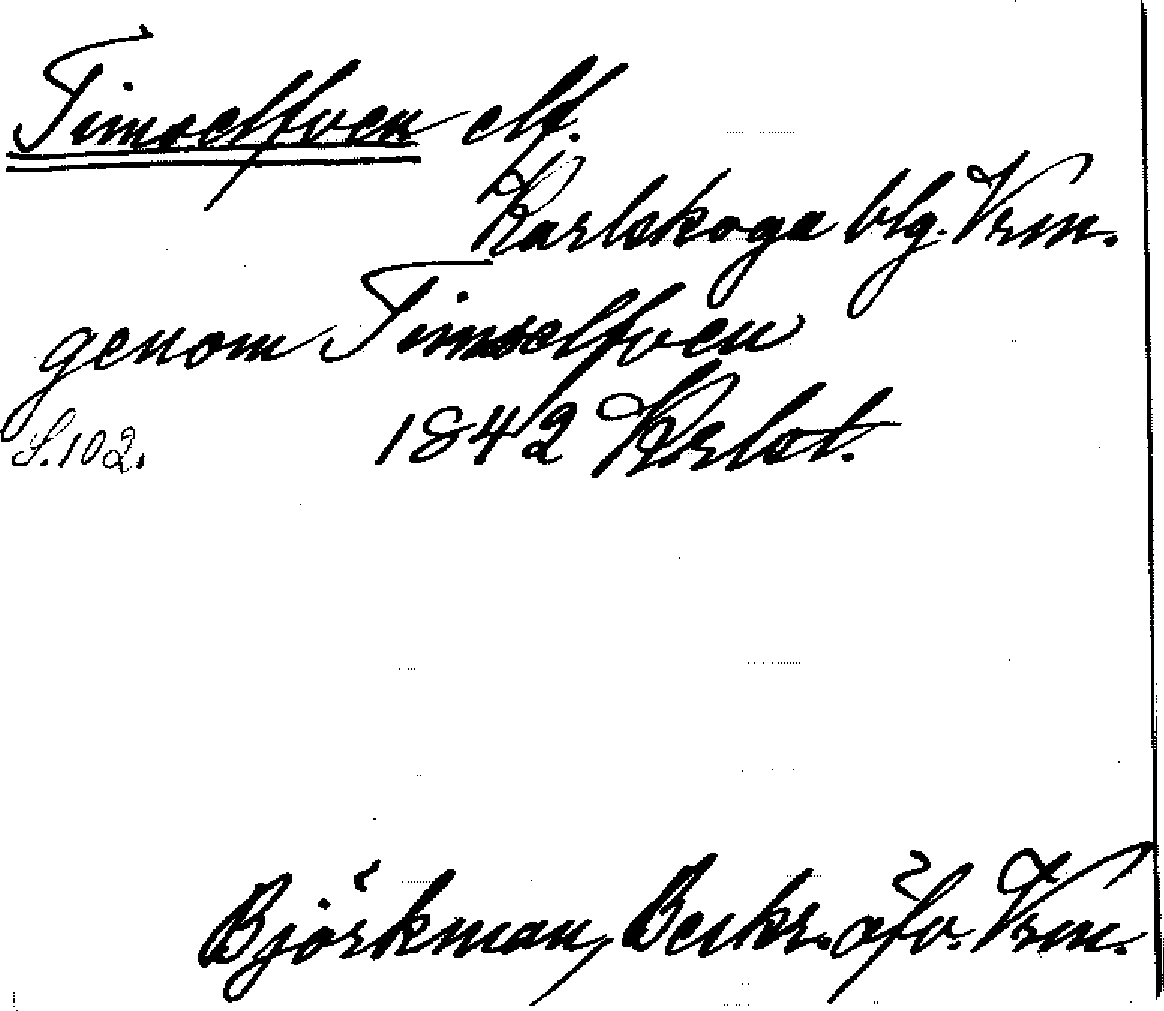 Timselfven elf.
Karlskoga blg. Vrm.
genom Timselfven
S. 102. 1842 Krlst.
Björkman, Beskr. öfv. Vrm.